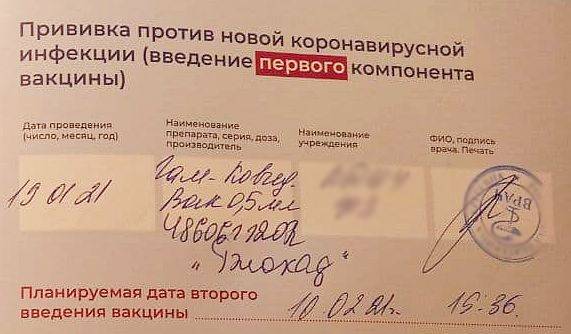 Прививка против новой коронавирусной
инфекции (введение первого компонента
вакцины)
Дата проведения
(число, месяц, год)
Наименование
препарата, серия, доза,
производитель
Наименование
учреждения
ФИО, подпись
врача. Печать
19 01 21
Гам-Ковид
Вак 0,5 мл
"Биокад"
ВРАЧ
Планируемая дата второго
введения вакцины 10.02.21г. 15:36